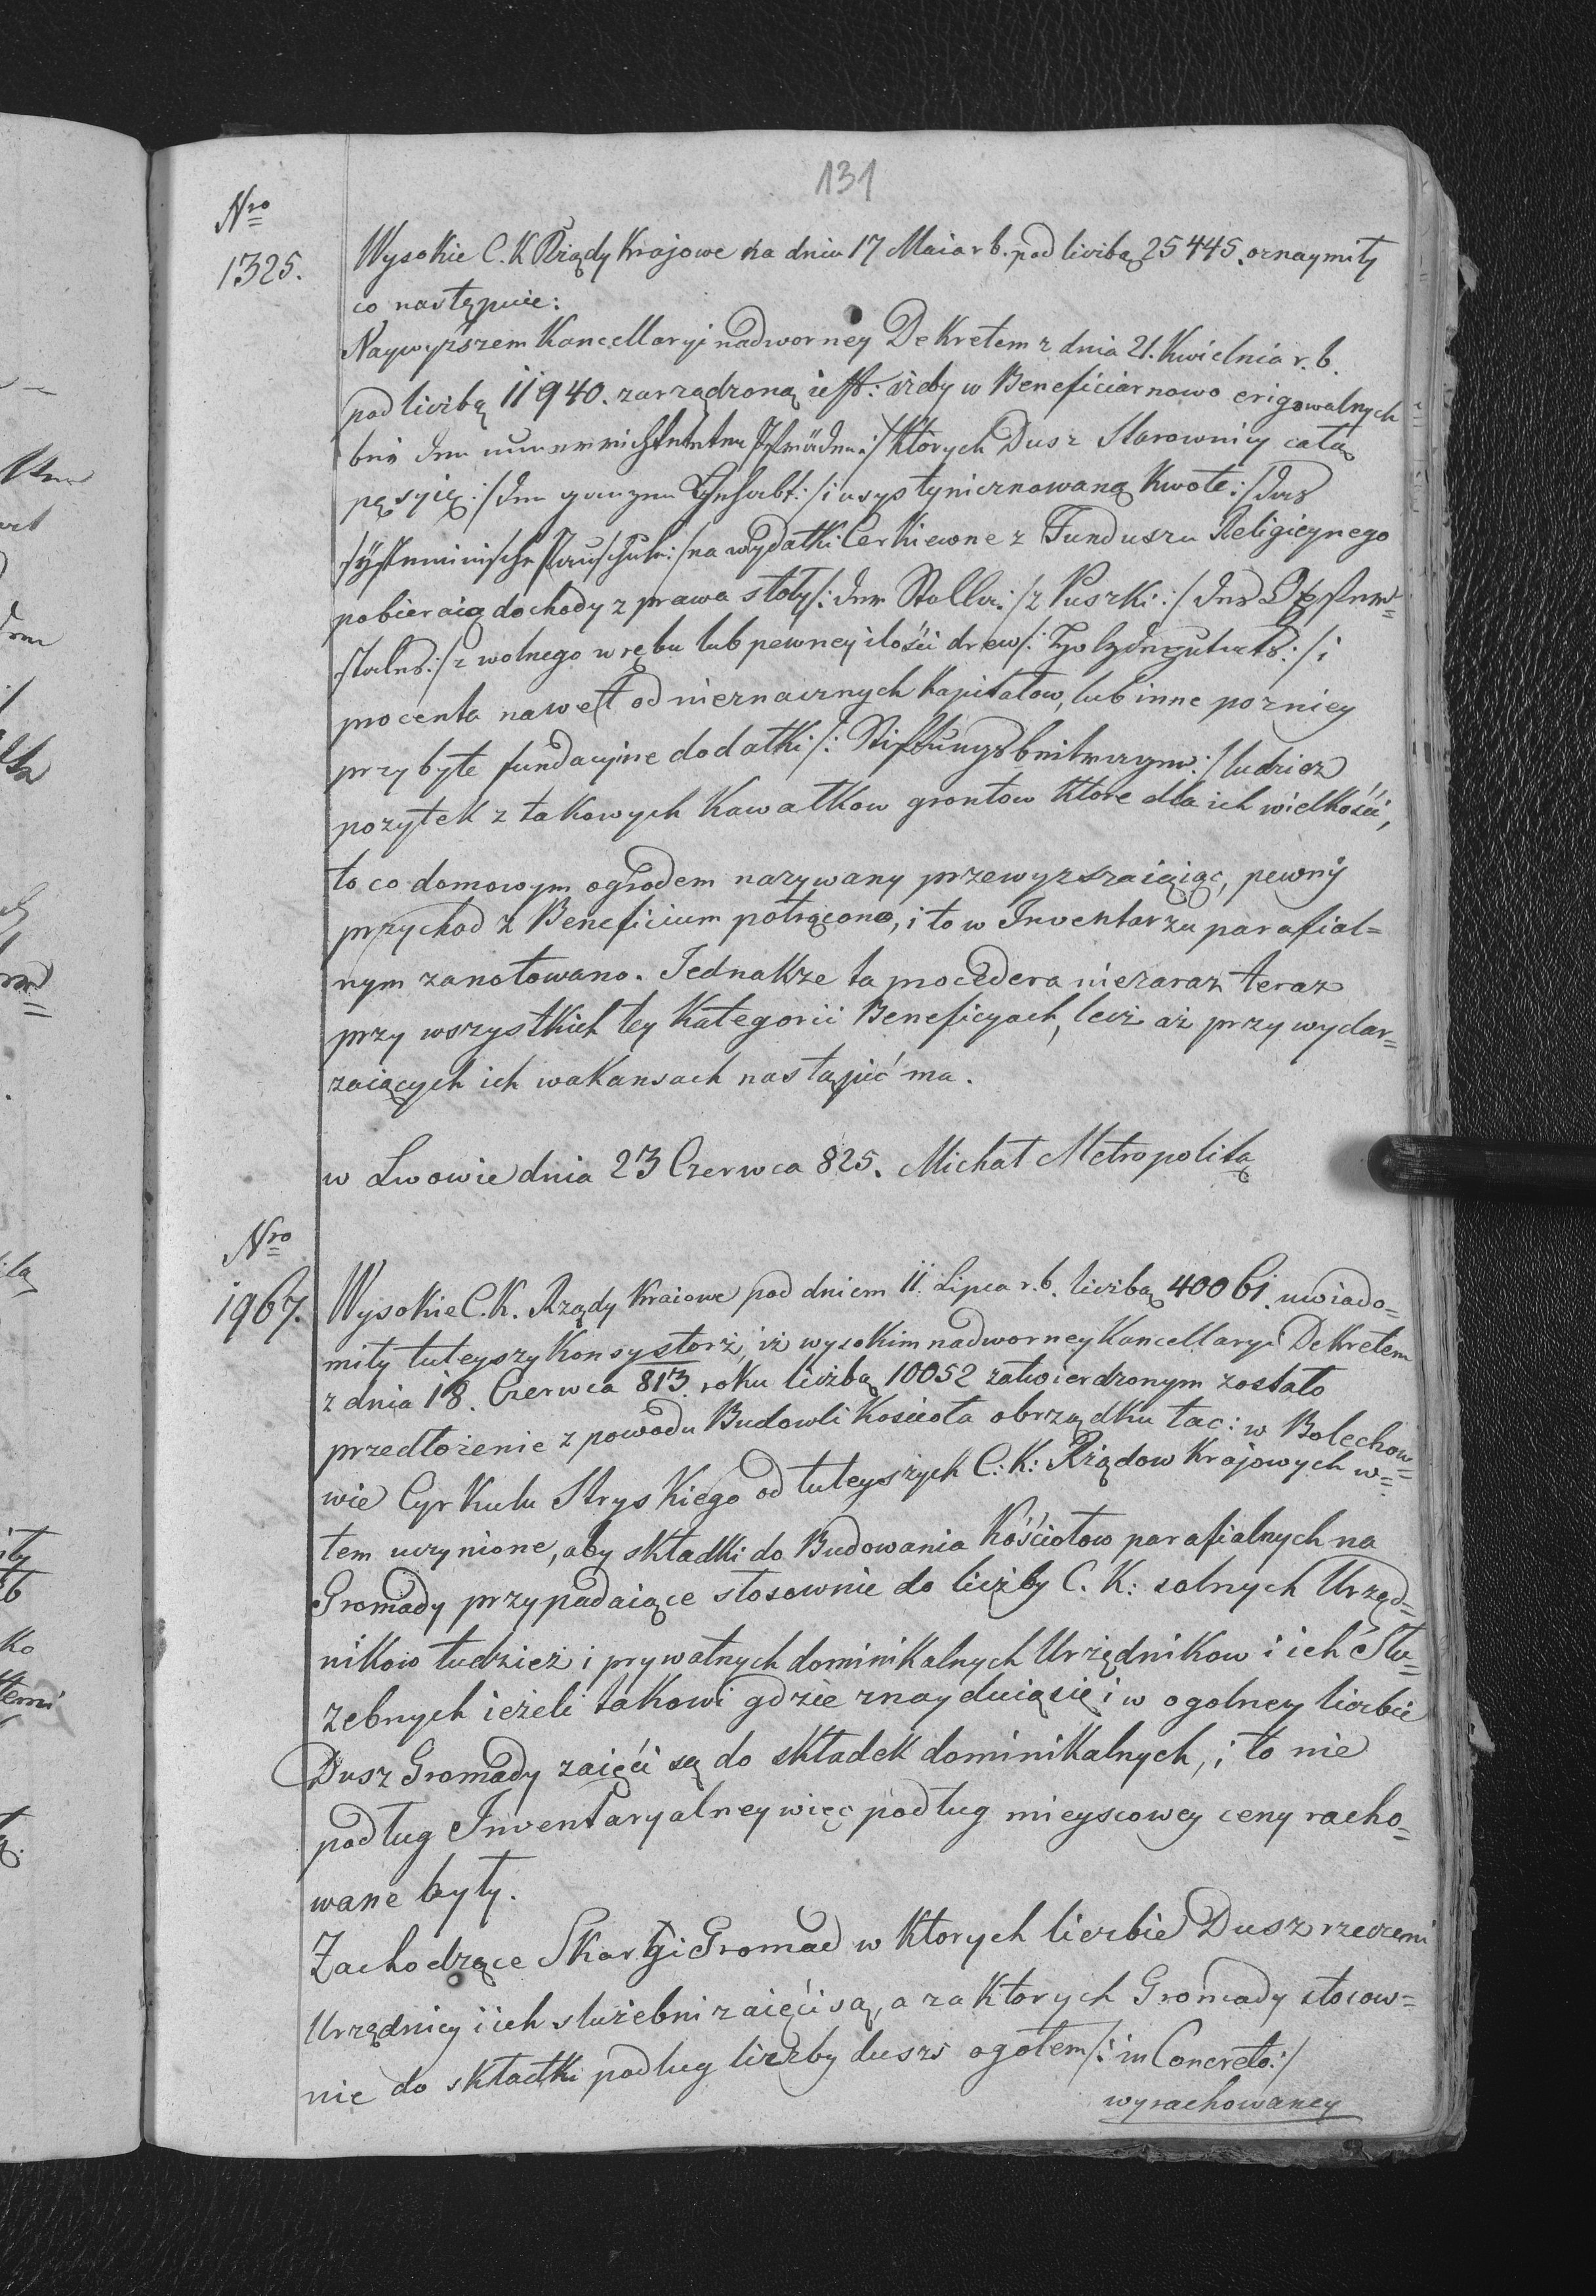 131
Nro
1325.
Wysokie C. K Rządy Krajowe na dniu 17 Maia r b. pod liczbą 25445. oznaymiły
co następuie:
Naywyższem Kancellaryi nadworney Dekretem z dnia 21. Kwietnia r. b.
pod liczbą 11940. zarządzoną iest: ażeby w Beneficiar nowo erigowalnych
bei den neuerrichteten Pfründen:/ których Dusz Starownicy całą
pęsyię:/ den ganzen Gehalt:/ i usystyniznowaną Kwotę:/ das
systeminische Pauschale:/ na wydatki Cerkiewne z Funduszu Religicynego
pobieraią dochody z prawa stoły/: der Stolla:/ z Puszki:/ des Opfer=
/ z wolnego wrębu lub pewney ilości drew/: Holzdeputats:/ i
procenta nawet od nieznacznych kapitałow, lub inne pozniey
przybyte fundacyine dodatki/: Stiftungsbeitraegen:/ tudzież
pożytek z takowych Kawałkow grontow które dla ich wielkości,
to co domowym ogrodem nazywany przewyzszaiąiąc, pewny
przychod z Beneficium potrącono, i to w Inventarzu parafial=
nym zanotowano. Jednakże ta procedera niezaraz teraz
przy wszystkich tey Kategorii Beneficyach, lecz aż przy wydar=
zaiących ich wakansach nastąpić ma.
w Lwowie dnia 23 Czerwca 825. Michał Metropolita
Nro
1967.
Wysokie C. K. Rządy Kraiowe pod dniem 11. Lipca r. b. liczbą 40061. uwiado=
miły tuteyszy Konsystorż, iż wysokim nadworney Kancellaryi Dekretem
z dnia 18. Czerwca 813. roku liczbą 10052 zatwierdzonym zostało
przedłożenie z powodu Budowli Kościoła obrządku łac: w Bolechow=
wie Cyrkułu Stryskiego od tuteyszych C: K: Rządow Krajowych w=
tem uczynione, aby składki do Budowania Kościołow parafialnych na
Gromady przypadaiące stosownie do liczby C. K: solnych Urzęd=
nikow tudzież i prywatnych dominikalnych Urzędnikow i ich Słu=
zebnych ieżeli takowi gdzie znayduią się i w ogolney liczbie
Dusz Gromady zaięci są do składek dominikalnych, i to nie
podług Inventaryalney więc podług mieyscowey ceny racho=
wane były.
Zachodzące Skargi Gromad w ktorych liczbie Dusz rzeczeni
Urzędnicy i ich służebni zaięci są, a za ktorych Gromady stosow=
nie do składki podług liczby dusz ogołem/: in Concreto:/
wyrachowaney